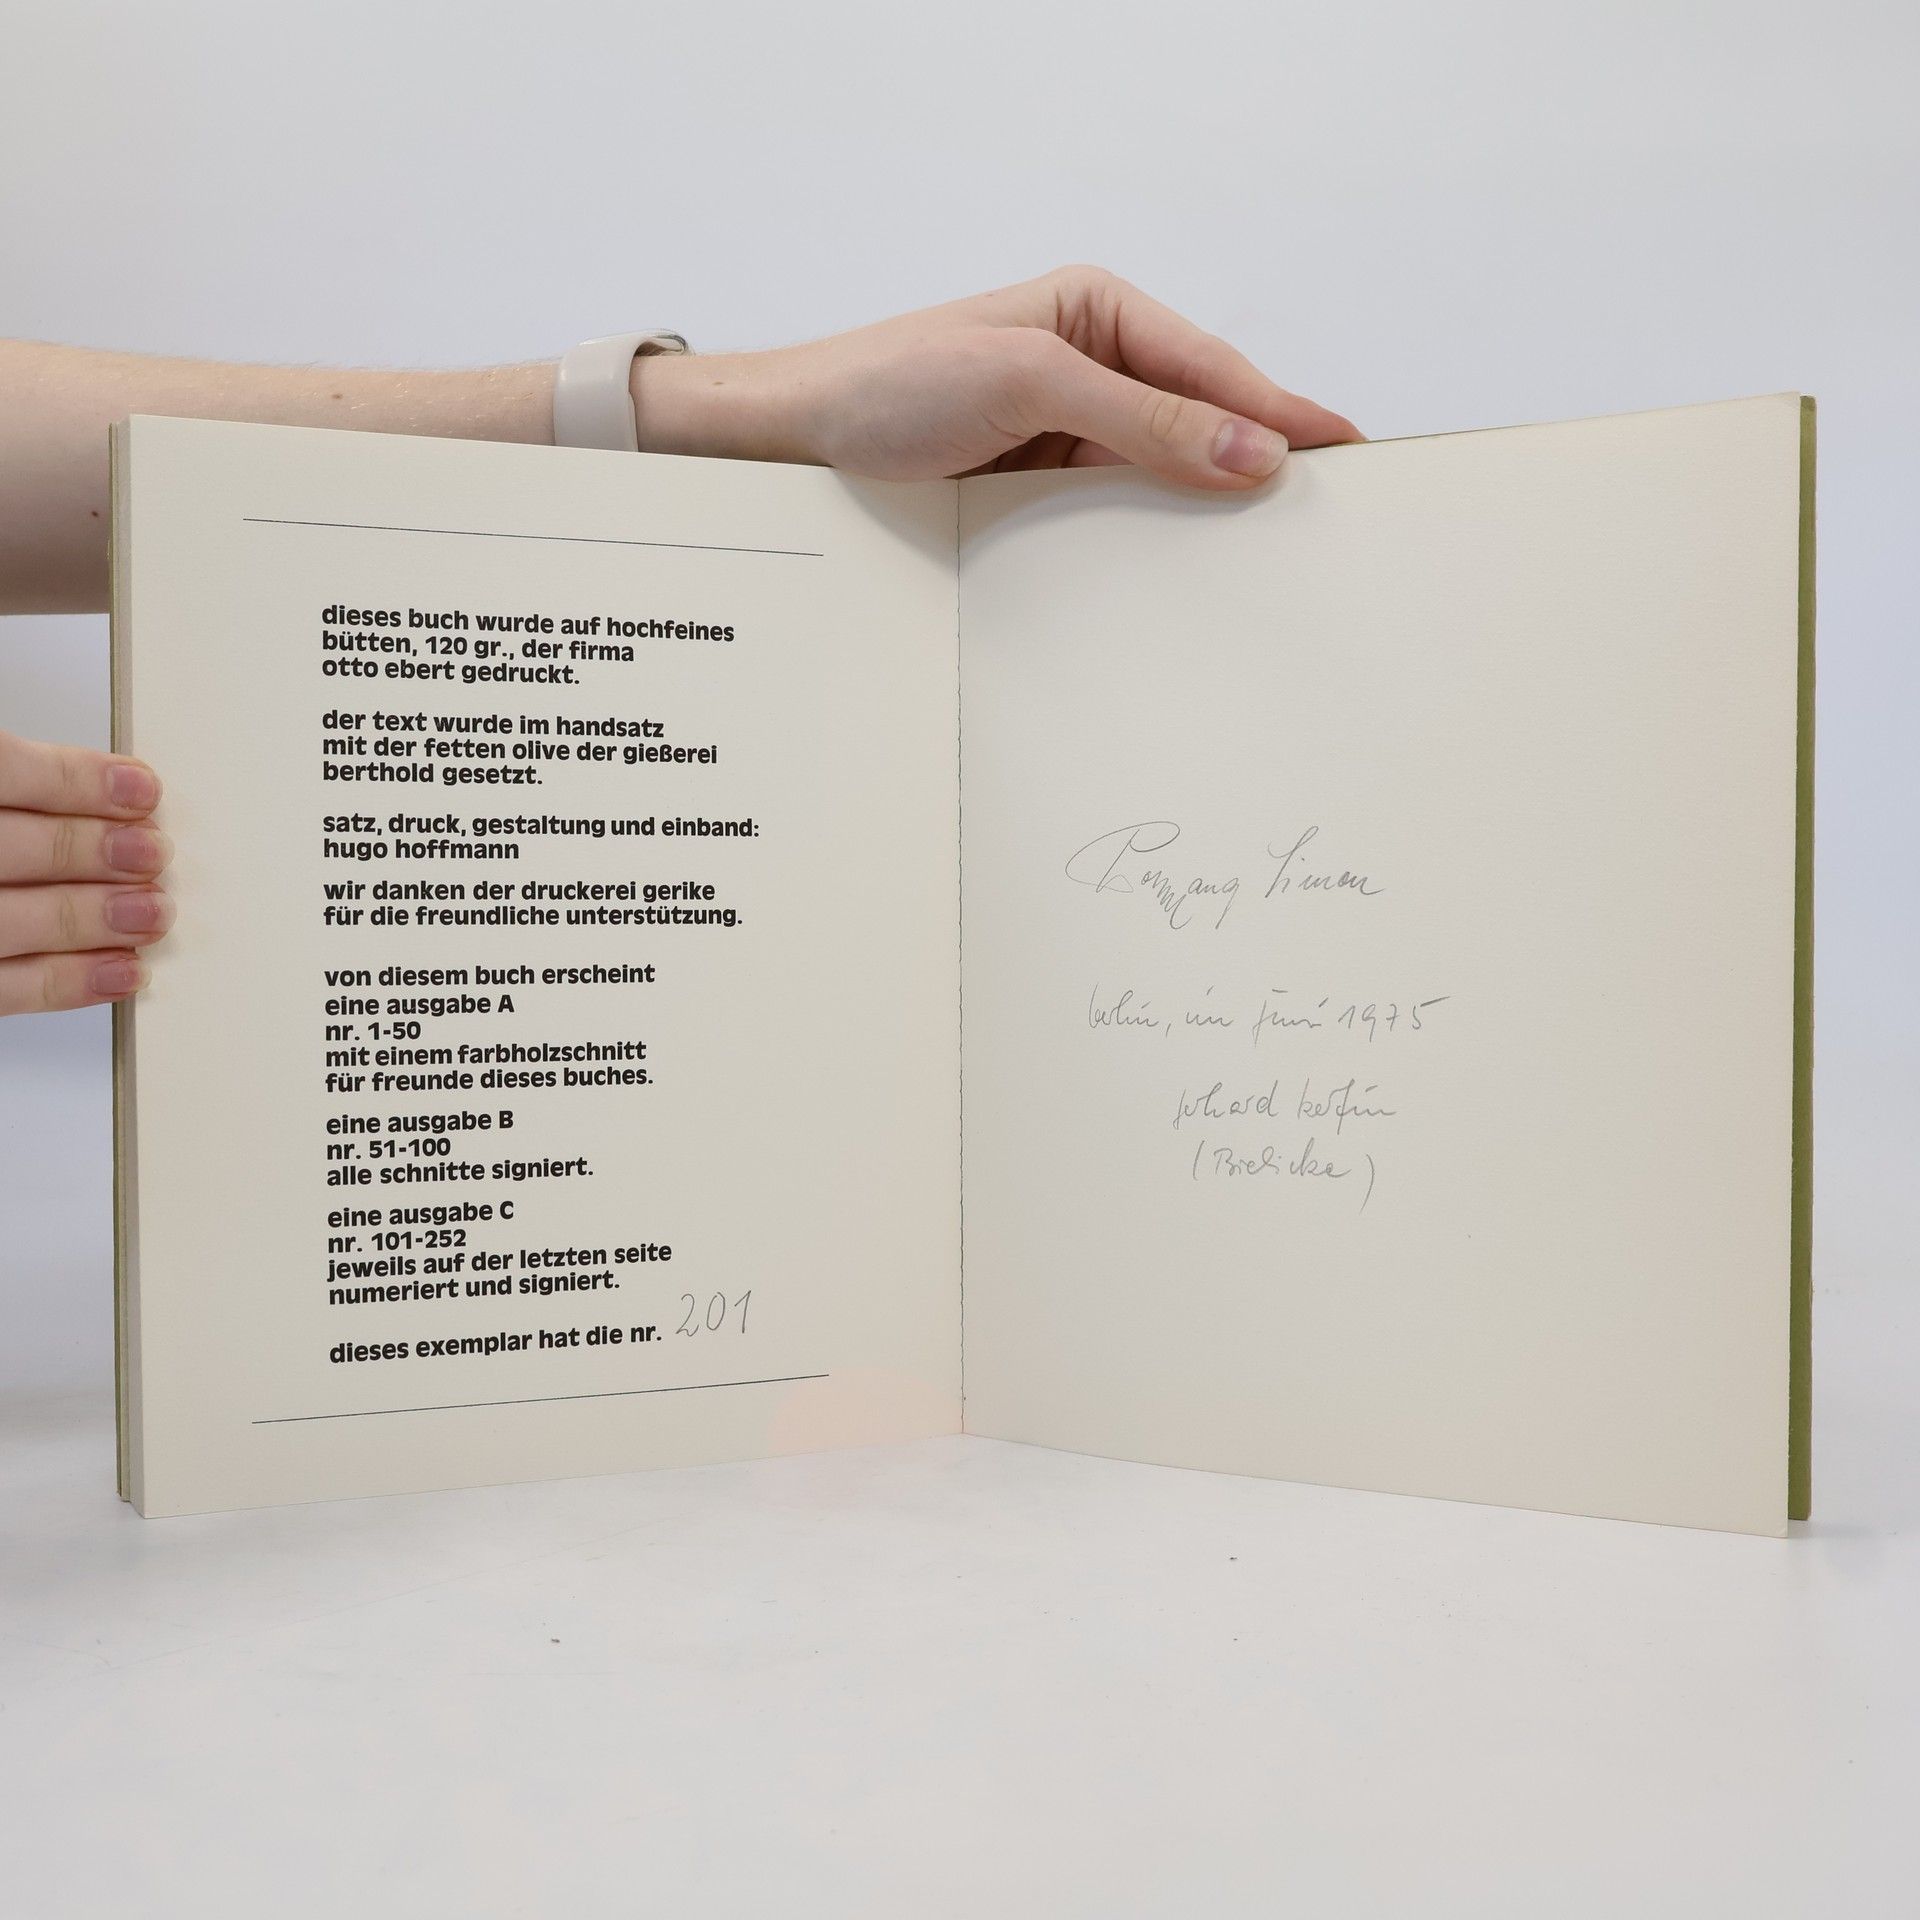 dieses buch wurde auf hochfeines
bütten, 120 gr., der firma
otto ebert gedruckt.
der text wurde im handsatz
mit der fetten olive der gießerei
berthold gesetzt.
satz, druck, gestaltung und einband:
hugo hoffmann
wir danken der druckerei gerike
für die freundliche unterstützung.
von diesem buch erscheint
eine ausgabe A
nr. 1-50
mit einem farbholzschnitt
für freunde dieses buches.
eine ausgabe B
nr. 51-100
alle schnitte signiert.
eine ausgabe C
nr. 101-252
jeweils auf der letzten seite
numeriert und signiert.
dieses exemplar hat die nr. 201
Simon
berlin, im Juni 1975
gerhard kerfin
(Bielicke)